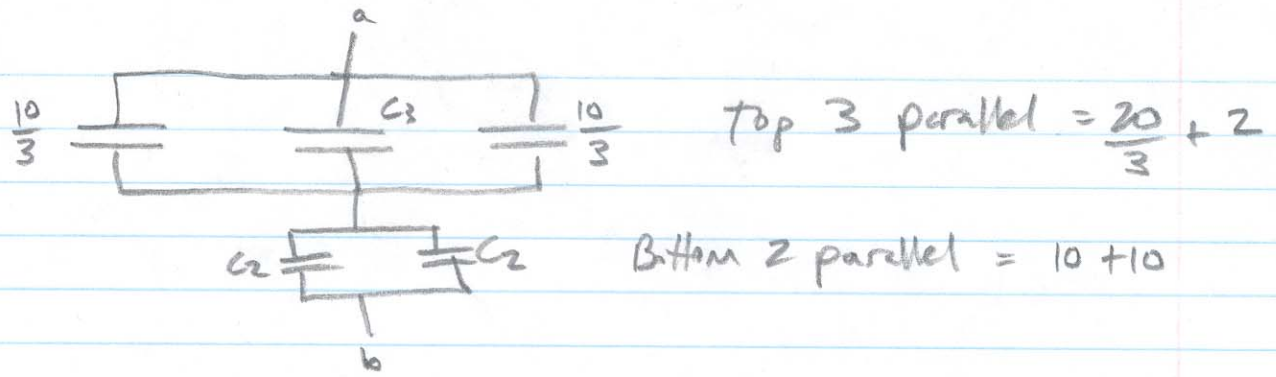 a
10/3 C3 10/3 Top 3 parallel = 20/3 + 2
C2 C2 Bottom 2 parallel = 10 + 10
b